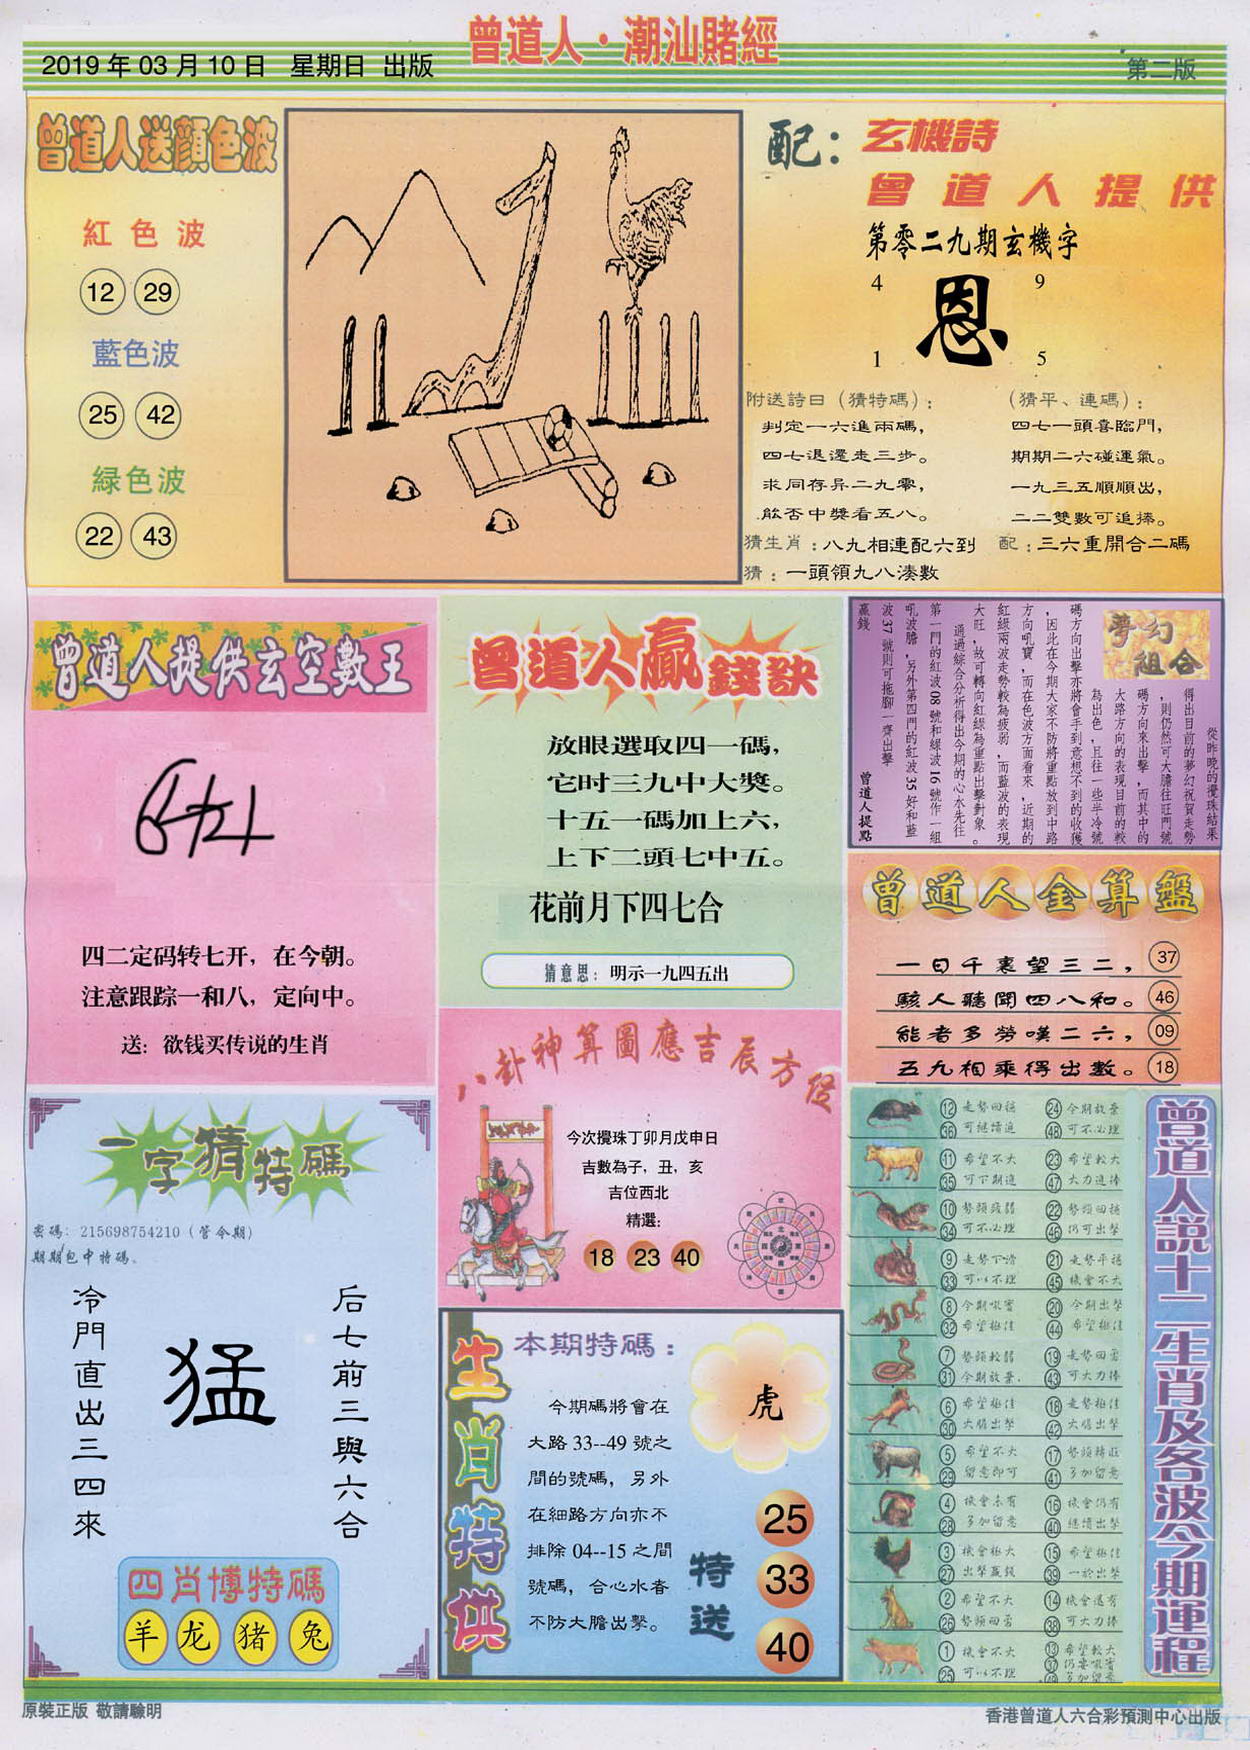 曾道人·潮汕賭經
2019年03月10日 星期日 出版
第二版
曾道人送顔色波
紅色波
12 29
藍色波
25 42
緑色波
22 43
配：玄機詩
曾道人提供
第零二九期玄機字
4 9
恩
1 5
附送詩曰（猜特碼）：
判定一六進兩碼，
四七退還走三步。
求同存异二九零，
能否中獎看五八。
（猜平、連碼）：
四七一頭喜臨門，
期期二六碰運氣。
一九三五順順出，
二二雙數可追捧。
猜生肖：八九相連配六到
配：三六重開合二碼
猜：一頭領九八湊數
曾道人提供玄空數王
四二定码转七开，在今朝。
注意跟踪一和八，定向中。
送：欲钱买传说的生肖
曾道人贏錢訣
放眼選取四一碼，
它时三九中大獎。
十五一碼加上六，
上下二頭七中五。
花前月下四七合
猜意思：明示一九四五出
夢幻組合
從昨晚的攪珠結果
得出目前的夢幻祝賀走勢
，則仍然可大膽往旺門號
碼方向來出擊，而其中的
大路方向的表現目前的較
為出色，且往一些半冷號
碼方向出擊亦將會手到意想不到的收獲
，因此在今期大家不防將重點放到中路
方向吼寶，而在色波方面看來，近期的
紅綠兩波走勢較為疲弱，而藍波的表現
大旺，故可轉向紅綠為重點出擊對象。
通過綜合分析得出今期的心水先往
第一門的紅波08號和綠波16號作一組
吼波膽，另外第四門的紅波35好和藍
波37號則可拖腳一齊出擊
贏錢
曾道人提點
曾道人金算盤
一日千裏望三二， 37
駭人聽聞四八和。 46
能者多勞嘆二六， 09
五九相乘得出數。 18
八卦神算圖應吉辰方位
今次攪珠丁卯月戊申日
吉數為子，丑，亥
吉位西北
精選：
18 23 40
一字猜特碼
密碼：215698754210（管令期）
期期包中特碼。
冷門直出三四來
猛
后七前三與六合
四肖博特碼
羊 龙 猪 兔
生肖特供
本期特碼：
虎
今期碼將會在
大路33--49號之
間的號碼，另外
在細路方向亦不
排除04--15之間
號碼，合心水者
不防大膽出擊。
特送
25
33
40
曾道人説十二生肖及各波今期運程
12 走勢回穩 24 今期放棄
36 可繼續追 48 可不必理
11 希望不大 23 希望較大
35 可下期追 47 大力追捧
10 勢頭疲弱 22 勢頭回穩
34 可不必理 46 仍可出擊
9 走勢下滑 21 走勢平穩
33 可以不理 45 機會不大
8 今期吼寶 20 今期出擊
32 希望極佳 44 希望極佳
7 勢頭較弱 19 走勢回勇
31 今期放棄. 43 可大力捧
6 希望極佳 18 走勢極佳
30 大膽出擊 42 大膽出擊
5 希望不大 17 勢頭轉旺
29 留意即可 41 多加留意
4 機會未有 16 機會仍有
28 多加留意 40 繼續出擊
3 機會極大 15 希望極佳
27 出擊贏錢 39 一於出擊
2 希望不大 14 機會還有
26 勢頭回勇 38 可大力捧
1 機會不大 13 希望較大
25 可以不理 37 仍要吼寶
49 多加留意
原裝正版 敬請驗明
香港曾道人六合彩預測中心出版